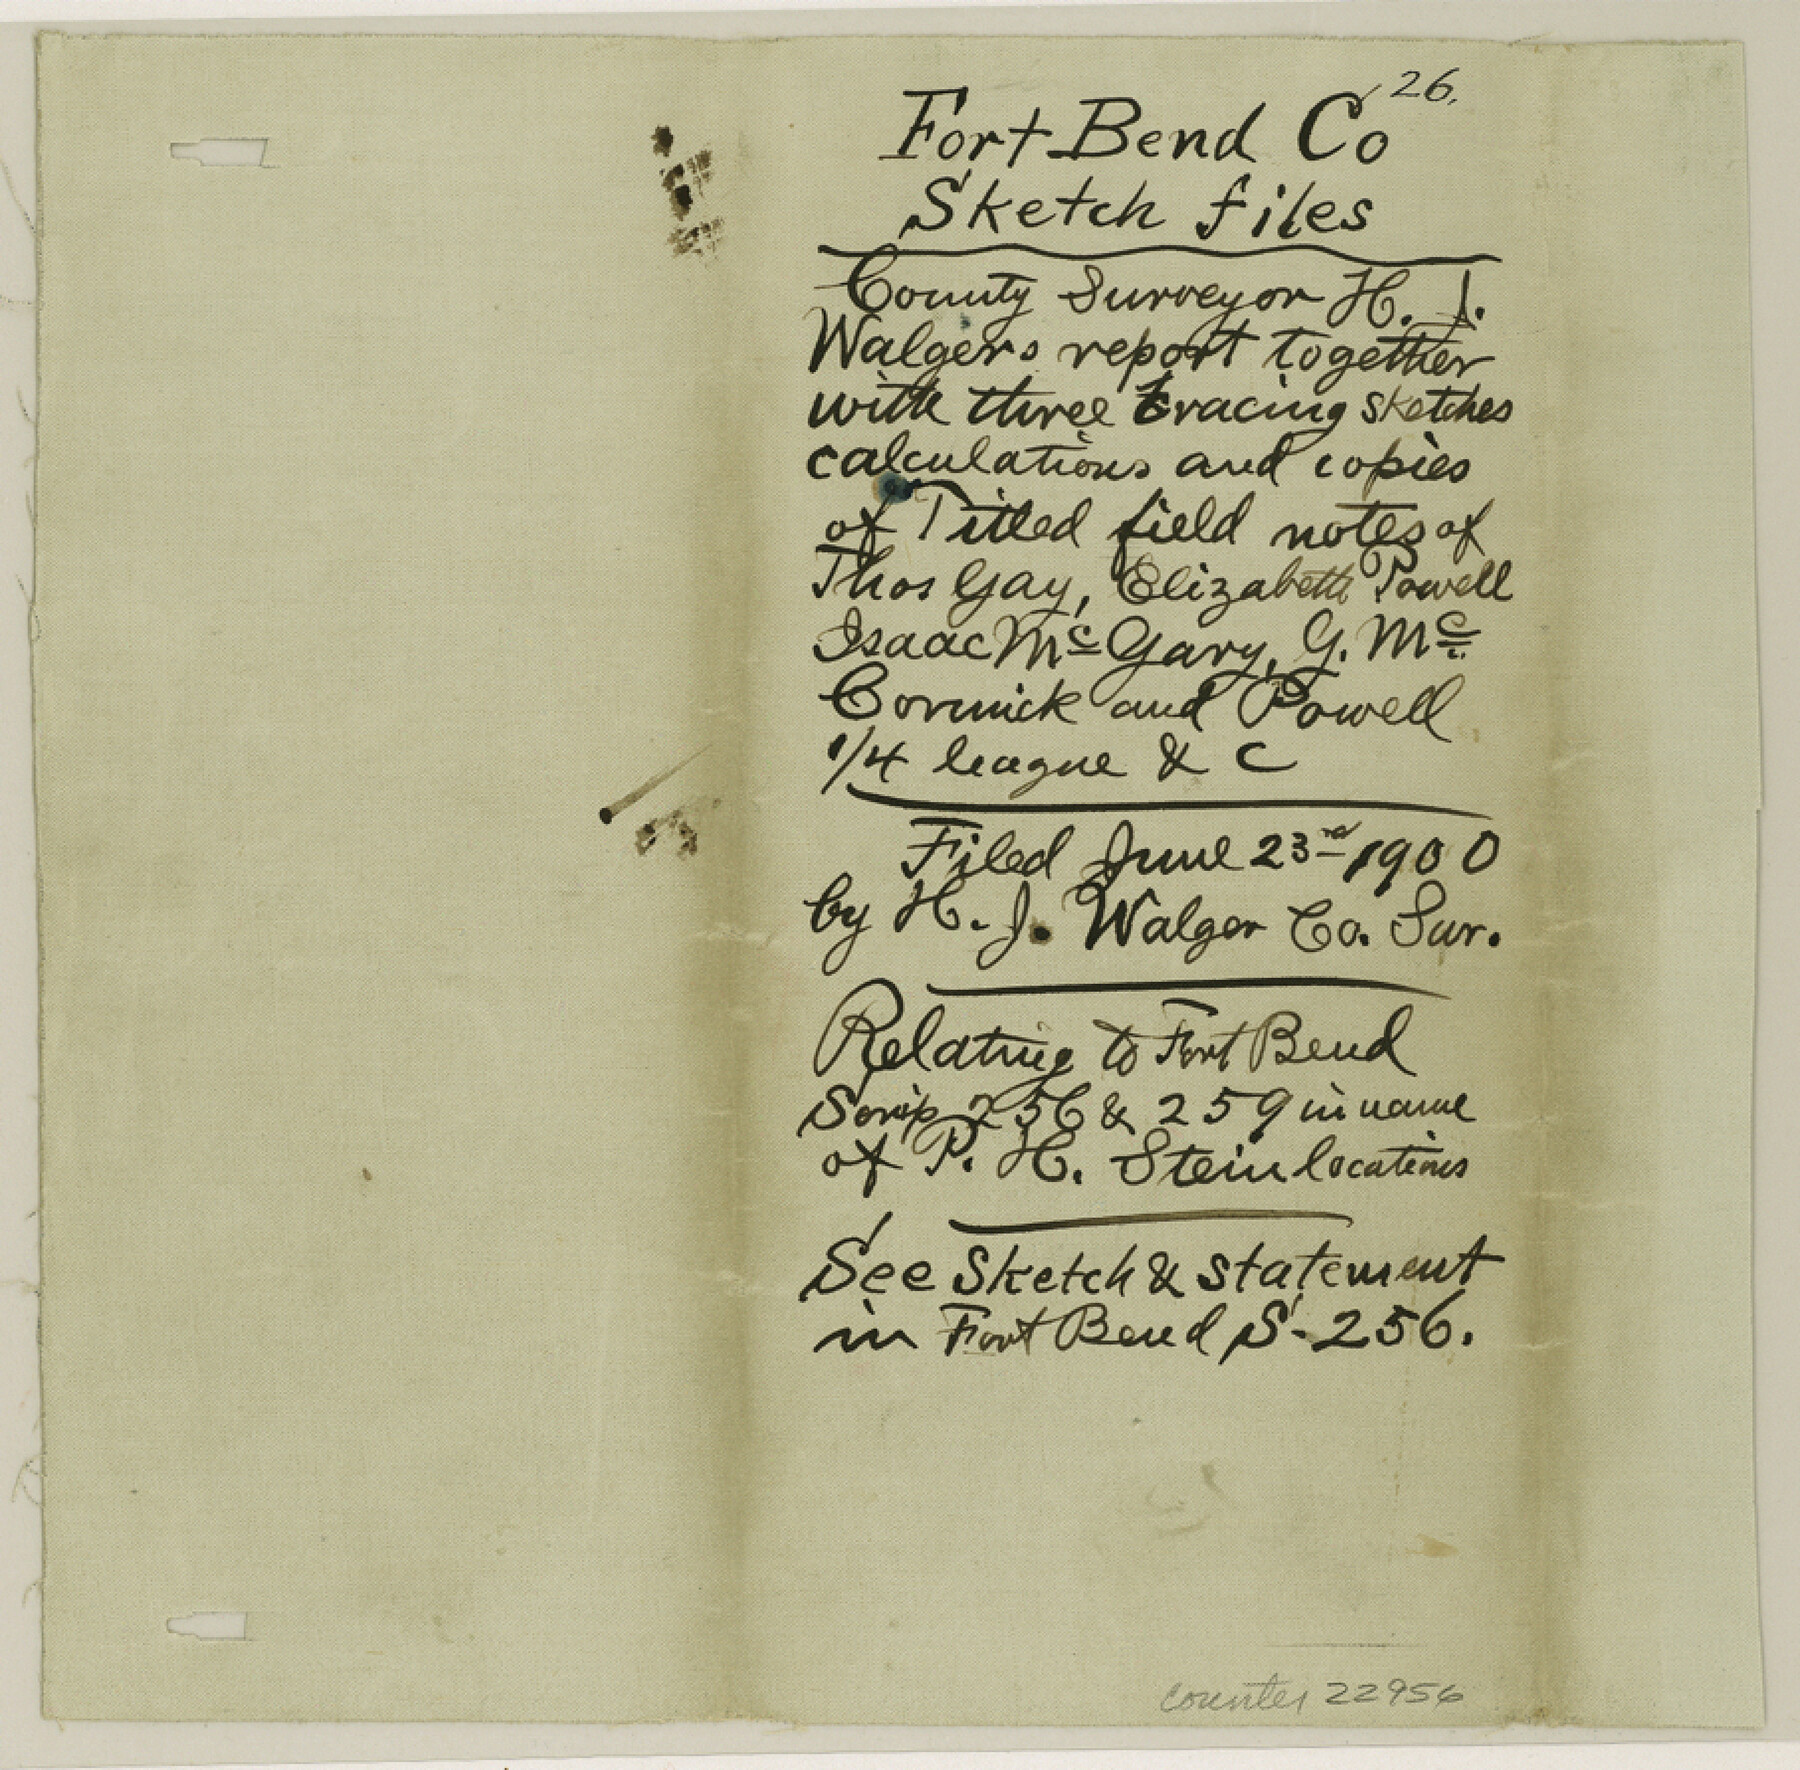 26.
Fort Bend Co
Sketch files
County Surveyor H. J.
Walgers report together
with three tracing sketches
calculations and copies
of Titled field notes of
Thos Gay, Elizabeth Powell
Isaac Mc Gary, G. Mc
Cormick and Powell
1/4 league & C
Filed June 23rd 1900
by H. J. Walger Co. Sur.
Relating to Fort Bend
Scrip 256 & 259 in name
of P. H. Stein locations
See Sketch & statement
in Fort Bend S-256.
counter 22956